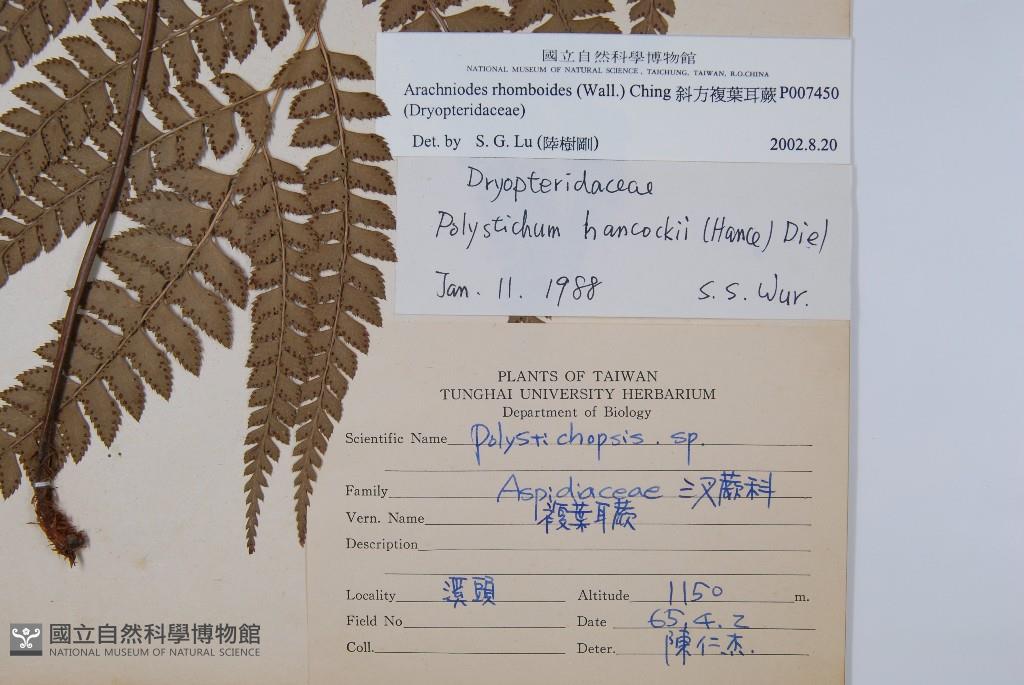 國立自然科學博物館
NATIONAL MUSEUM OF NATURAL SCIENCE, TAICHUNG, TAIWAN, R.O.CHINA
Arachniodes rhomboides (Wall.) Ching 斜方複葉耳蕨 P007450
(Dryopteridaceae)
Det. by S. G. Lu (陸樹剛) 2002.8.20
Dryopteridaceae
Polystichum hancockii (Hance) Diel
Jan. 11. 1988 S. S. Wur.
PLANTS OF TAIWAN
TUNGHAI UNIVERSITY HERBARIUM
Department of Biology
Scientific Name Polystichopsis. sp.
Family Aspidiaceae 三叉蕨科
Vern. Name 複葉耳蕨
Description
Locality 溪頭 Altitude 1150 m.
Field No Date 65.4.2
Coll. Deter. 陳仁杰.
國立自然科學博物館
NATIONAL MUSEUM OF NATURAL SCIENCE